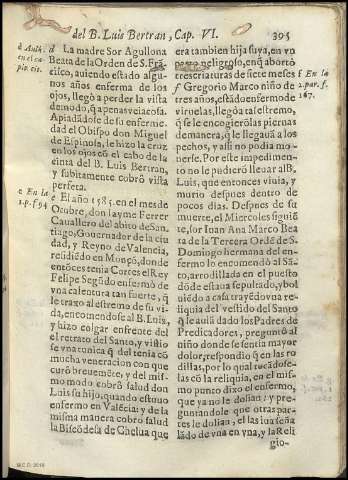 del B. Luis Bertran, Cap. VI.
395
d Auth.
en el co
pio. cit.
d La madre Sor Agullona
Beata de la Orden de S. Frã-
cisco, auiendo estado algu-
nos años enferma de los
ojos, llegò a perder la vista
de modo, q̃ apenas veia cosa.
Apiadãdose de su enferme-
dad el Obispo don Miguel
de Espinosa, le hizo la cruz
en los ojos cõ el cabo de la
cinta del B. Luis Bertran,
y subitamente cobrò vista
perfeta.
e En la
1.p.f 94
e El año 1585. en el mes de
Octubre, don Iayme Ferrer
Cauallero del abito de San-
tiago, Gouernador de la ciu-
dad, y Reyno de Valencia,
residiẽdo en Monçõ, donde
entõces tenia Cortes el Rey
Felipe Segũdo enfermò de
vna calentura tan fuerte, q̃
le traxo al estremo de su vi-
da, encomendose al B. Luis,
y hizo colgar enfrente del
el retrato del Santo, y vistio
se vna tunica q̃ del tenia cõ
mucha veneracion con que
curò breuemẽte. y del mis-
mo modo cobrò salud don
Luis su hijo, quando estuuo
enfermo en Valẽcia: y de la
misma manera cobro salud
la Bisẽodesa de Chelua que
era tambien hija suya, en vn
parto peligroso, en q̃ abortò
tres criaturas de siete meses
f En la
2. par. f.
167.
f Gregorio Marco niño de
tres años, estãdo enfermo de
viruelas, llegò a tal estremo,
q̃ se le encogierõ las piernas
de manera, q̃ le llegauã a los
pechos, y assi no podia mo-
uerse. Por este impedimen-
to no le pudierõ lleuar al B.
Luis, que entonces viuia, y
murio dentro de pocos
dias. Despues de su
muerte, el Miercoles siguiẽ
te, sor Iuan Ana Marco Bea
ta de la Tercera Ordẽ de S.
Domingo hermana del en-
fermo lo encomendò al Sã-
to, arrodillada en el puesto
dõde estaua sepultado, y bol
uiẽdo a casa trayẽdo vna re-
liquia del vestido del Santo
q̃ le auiã dado los Padres de
Predicadores, preguntò al
niño donde se sentia mayor
dolor; respondiò q̃ en las ro
dillas, por lo qual tocãdose-
las cõ la reliquia, en el mis-
mo punto dixo el enfermo,
que ya no le dolian: y pre-
guntandole que otras par-
tes le dolian, el las iua seña
lãdo de vna en vna, y la Reli
gio-